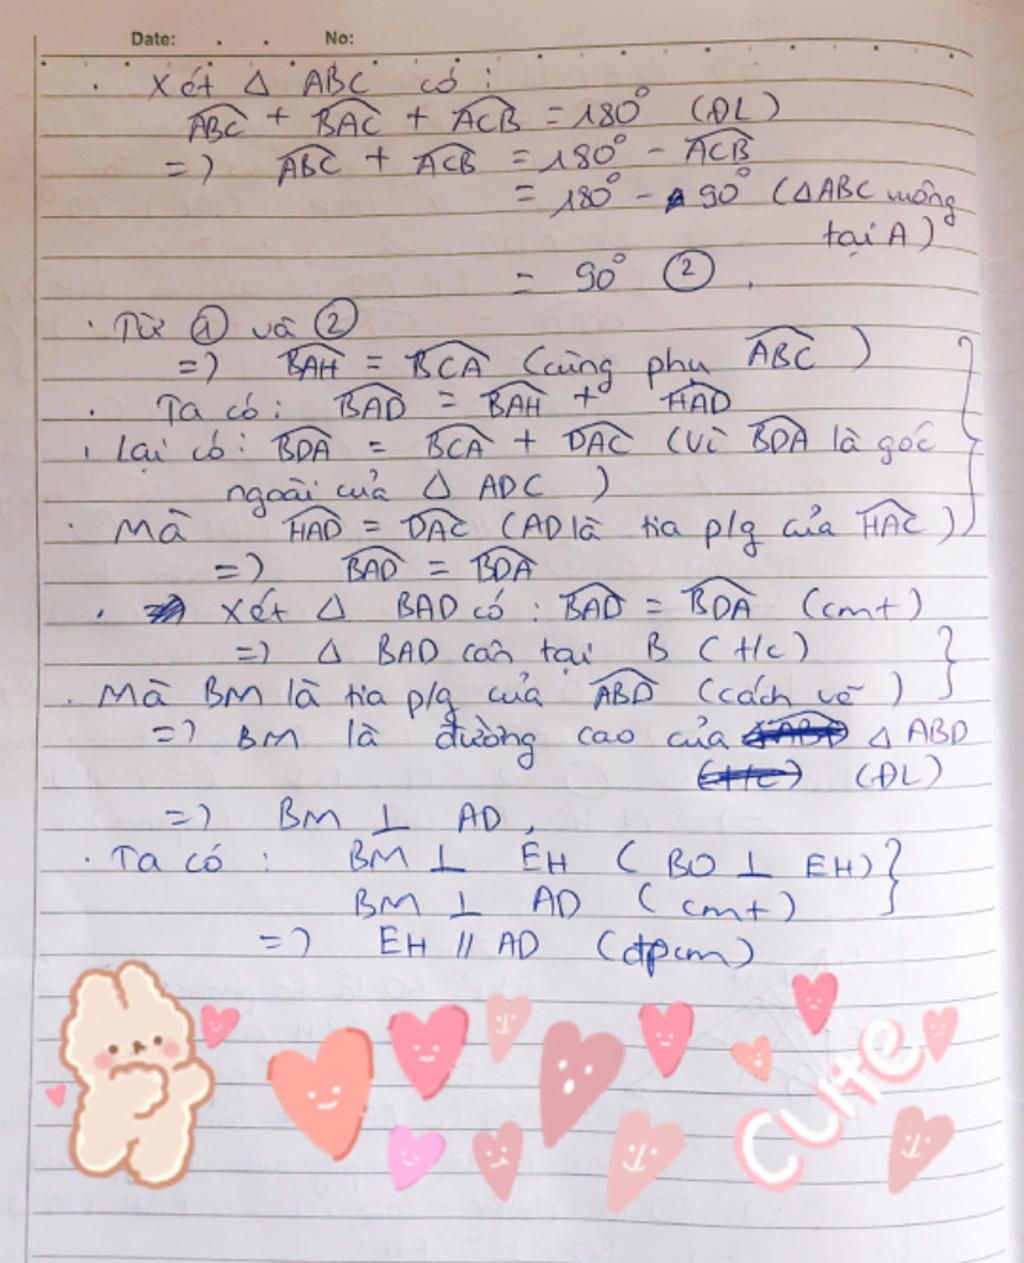 Date: . . No:
. Xét Δ ABC có :
\widehat{ABC} + \widehat{BAC} + \widehat{ACB} = 180° (ĐL)
=) \widehat{ABC} + \widehat{ACB} = 180° - \widehat{ACB}
= 180° - 90° (ΔABC vuông
tại A)
= 90° ② .
. Từ ① và ②
=) \widehat{BAH} = \widehat{BCA} (cùng phụ \widehat{ABC} )
. Ta có : \widehat{BAD} = \widehat{BAH} + \widehat{HAD}
. Lại có : \widehat{BDA} = \widehat{BCA} + \widehat{DAC} (vì \widehat{BDA} là góc
ngoài của Δ ADC )
. Mà \widehat{HAD} = \widehat{DAC} (AD là tia p/g của \widehat{HAC} )
=) \widehat{BAD} = \widehat{BDA}
. Xét Δ BAD có : \widehat{BAD} = \widehat{BDA} (cmt)
=) Δ BAD cân tại B (t/c)
. Mà BM là tia p/g của \widehat{ABD} (cách vẽ )
=) BM là đường cao của Δ ABD
(ĐL)
=) BM ⊥ AD ,
. Ta có : BM ⊥ EH ( BO ⊥ EH) }
BM ⊥ AD ( cmt)
=) EH // AD (đpcm)
Cute